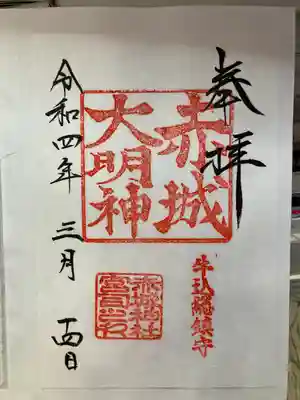 奉拝
牛込總鎮守
赤城
大明神
赤城神社
宮司之印
令和四年 三月 十四日